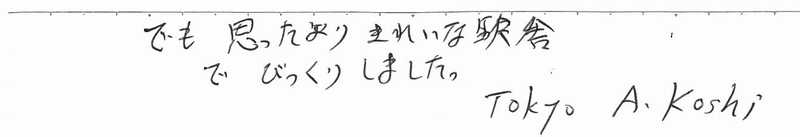 でも 思ったより きれいな駅舎
で びっくりしました。
Tokyo A. Koshi